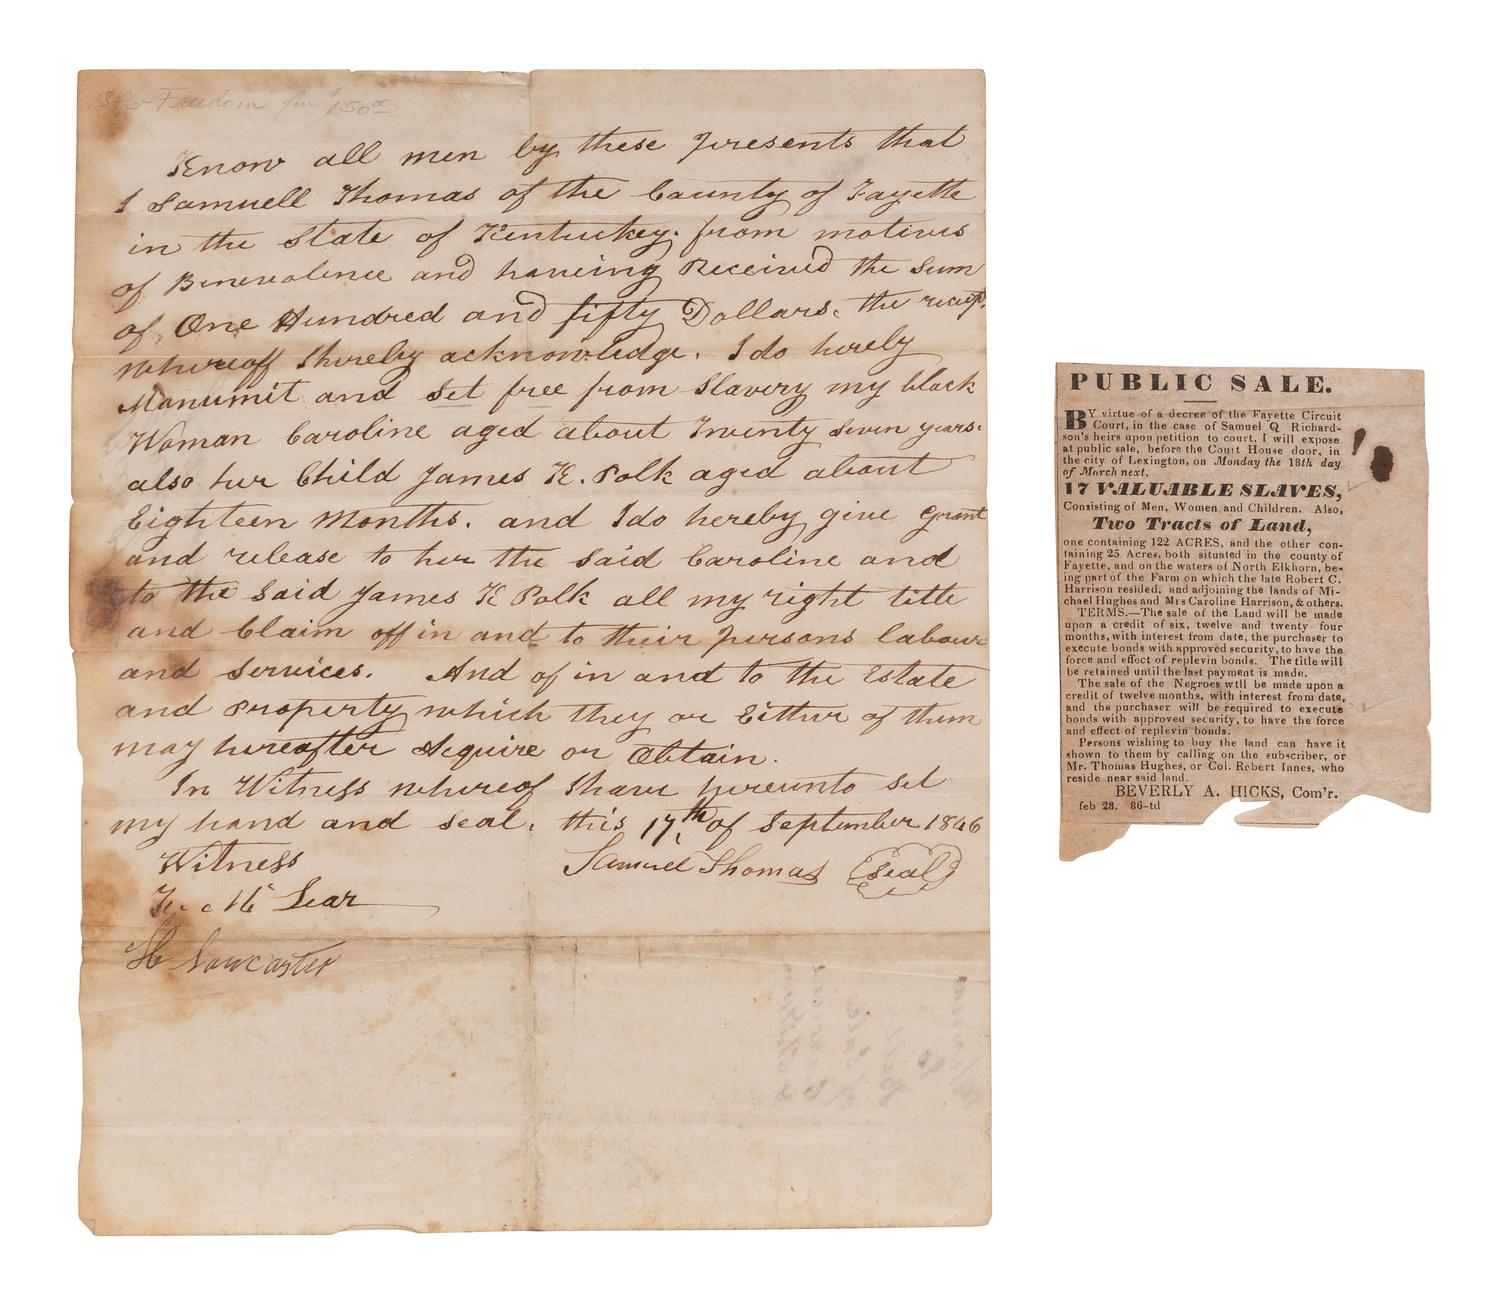 1846 Freedom for $150.00
Know all men by these presents that
I Samuell Thomas of the County of Fayette
in the State of Kentucky. from motives
of Benevolence and haveing Received the Sum
of One Hundred and fifty Dollars, the recept
whereoff I hereby acknowledge. I do hereby
Manumit and Set free from Slavery my black
Woman Caroline aged about Twenty Seven years.
also her Child James K. Polk aged about
Eighteen Months. and I do hereby give Grant
and release to her the Said Caroline and
to the Said James K Polk all my right title
and Claim off in and to their persons labour
and services. And of in and to the Estate
and property which they or Either of them
may hereafter Acquire or Obtain.
In Witness whereof I have hereunto Set
my hand and seal. this 17th of September 1846
Witness
Samuel Thomas (Seal)
Lear
H Lancaster
PUBLIC SALE.
BY virtue of a decree of the Fayette Circuit
Court, in the case of Samuel Q Richard-
son's heirs upon petition to court, I will expose
at public sale, before the Court House door, in
the city of Lexington, on Monday the 18th day
of March next,
17 VALUABLE SLAVES,
Consisting of Men, Women and Children. Also,
Two Tracts of Land,
one containing 122 ACRES, and the other con-
taining 25 Acres, both situated in the county of
Fayette, and on the waters of North Elkhorn, be-
ing part of the Farm on which the late Robert C.
Harrison resided, and adjoining the lands of Mi-
chael Hughes and Mrs Caroline Harrison, & others.
TERMS.—The sale of the Land will be made
upon a credit of six, twelve and twenty four
months, with interest from date, the purchaser to
execute bonds with approved security, to have the
force and effect of replevin bonds. The title will
be retained until the last payment is made.
The sale of the Negroes will be made upon a
credit of twelve months, with interest from date,
and the purchaser will be required to execute
bonds with approved security, to have the force
and effect of replevin bonds.
Persons wishing to buy the land can have it
shown to them by calling on the subscriber, or
Mr. Thomas Hughes, or Col. Robert Innes, who
reside near said land.
BEVERLY A. HICKS, Com'r.
feb 28. 86-td